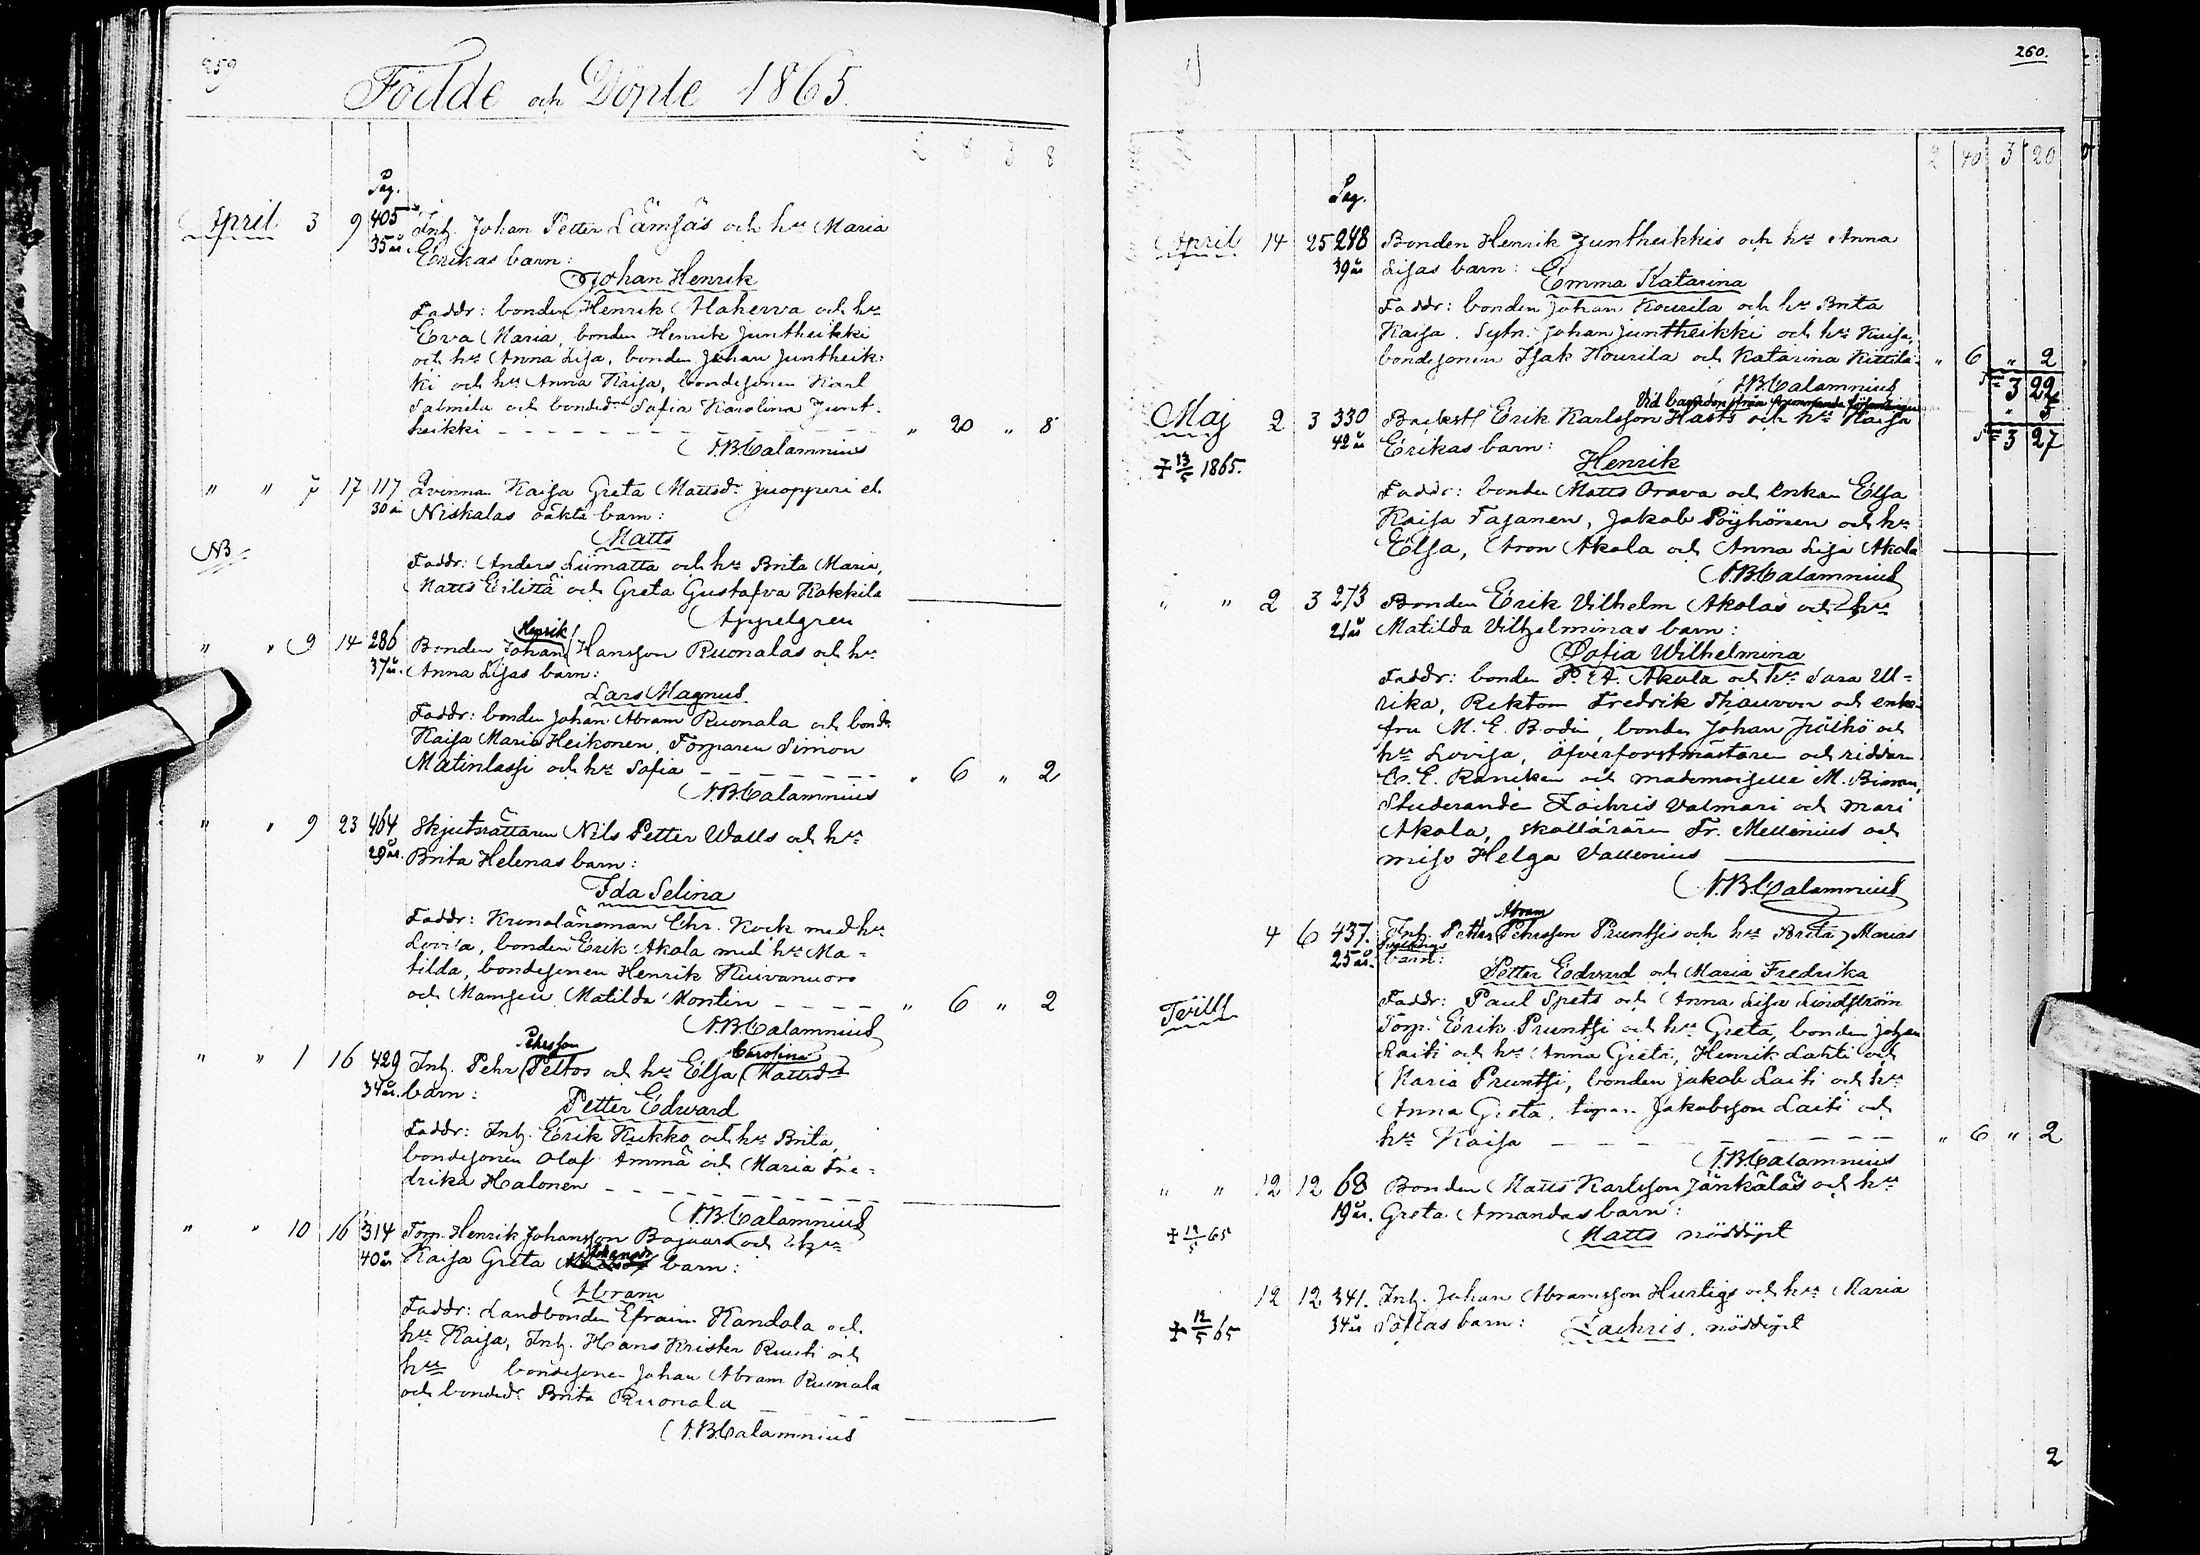 259
Födde och Döpte 1865.
2 8 3 8
Pag.
April 3 9 405 Inh. Johan Petter Lämsäs och hu Maria
35 år. Erikas barn:
Johan Henrik
Faddr: bonden Henrik Maherva och hu
Eva Maria, bonden Henrik Juntheikki
och hu Anna Lisa, bonden Johan Juntheik-
ki och hu Anna Kaisa, bondesonen Karl
Salmela och bonded. Sofia Karolina Junt-
heikki " 20 " 8
N.B.Calamnius
" " 7 17 117 Qvinnan Kaisa Greta Mattsdr Juopperi el.
30 år Niskalas oäkta barn:
Matts
NB Faddr: Anders Liimatta och hu Brita Maria,
Matts Eilittä och Greta Gustafva Kakkila
Appelgren
Henrik
" " 9 14 286 Bonden Johan Hansson Ruonalas och hu
37 år. Anna Lisas barn:
Lars Magnus
Faddr: bonden Johan Abram Ruonala och bondr
Kaisa Maria Heikonen, Torparen Simon
Matinlassi och hu Sofia " 6 " 2
N.B.Calamnius
" " 9 23 464 Skjutsrättaren Nils Petter Walls och hu
29 år. Brita Helenas barn:
Ida Selina
Faddr: Kronolänsman Chr. Kock med hu
Lovisa, bonden Erik Akola med hu Ma-
tilda, bondesonen Henrik Kuivanuoro
och Mamsell Matilda Montin " 6 " 2
N.B.Calamnius
Pehrsson Carolina
" " 1 16 429 Inh. Pehr Peltos och hu Elsa Mattsdr
34 år. barn:
Petter Edward
Faddr: Inh. Erik Kukko och hu Brita,
bondesonen Olaf Ammä och Maria Fre-
drika Halonen
N.B.Calamnius
" " 10 16 314 Torp. Henrik Johansson Bajaars och hu
40 år Kaisa Greta barn:
Abram
Faddr: Landbonden Efraim Kandala och
hu Kaisa, Inh. Hans Krister Ruuti och
hu bondesonen Johan Abram Ruonala
och bonded. Brita Ruonala
N.B.Calamnius
260.
2 40 3 20
Pag.
April 14 25 248 Bonden Henrik Juntheikkis och hu Anna
39 år Lisas barn:
Emma Katarina
Faddr: bonden Johan Kourila och hu Brita
Kaisa. Sytn. Johan Juntheikki och hu Kaisa,
bondesonen Isak Kourila och Katarina Kittilä " 6 " 2
N.B.Calamnius 3 22
" 5
Maj 2 3 330 Backst. Erik Karlsson Hasts och hu Kaisa 3 27
42 år Erikas barn:
† 13/5 1865. Henrik
Faddr: bonden Matts Orava och Enkan Elsa
Kaisa Tapanen, Jakob Pöyhönen och hu
Elsa, Aron Akola och Anna Lisa Akola
N.B.Calamnius
" " 2 3 273 Bonden Erik Vilhelm Akolas och hu
21 år Matilda Vilhelminas barn:
Sofia Wilhelmina
Faddr: bonden P. A. Akola och hu Sara Ul-
rika, Rektorn Fredrik Thauvon och enke-
fru M. E. Bodin, bonden Johan JUlkö och
hu Lovisa, öfverforstmästaren och riddaren
C. E. Rancken och mademoiselle M. Biman,
Studerande Zachris Valmari och Mari
Akola, skolläraren Fr. Mellenius och
miss Helga Vallenius
N.B.Calamnius
Abram
4 6 437. Inh. Petter Pehrsson Pruntsis och hu Brita Marias
25 år. tvillings barn:
Petter Edvard och Maria Fredrika
Tvill. Faddr: Paul Spets och Anna Lisa Lindström
Torp. Erik Pruntsi och hu Greta, bonden Johan
Laiti och hu Anna Greta, Henrik Lahti och
Maria Pruntsi, bonden Jakob Laiti och hu
Anna Greta, Jakobsson Laiti och
hu Kaisa " 6 " 2
N.B.Calamnius
" " 12 12 68 Bonden Matts Karlsson Jänkäläs och hu
19 år. Greta Amandas barn:
† 12/5 65 Matts nöddöpt
12 12 341. Inh. Johan Abramsson Hurtigs och hu Maria
† 12/5 65 34 år Sofias barn: Zachris, nöddöpt
2